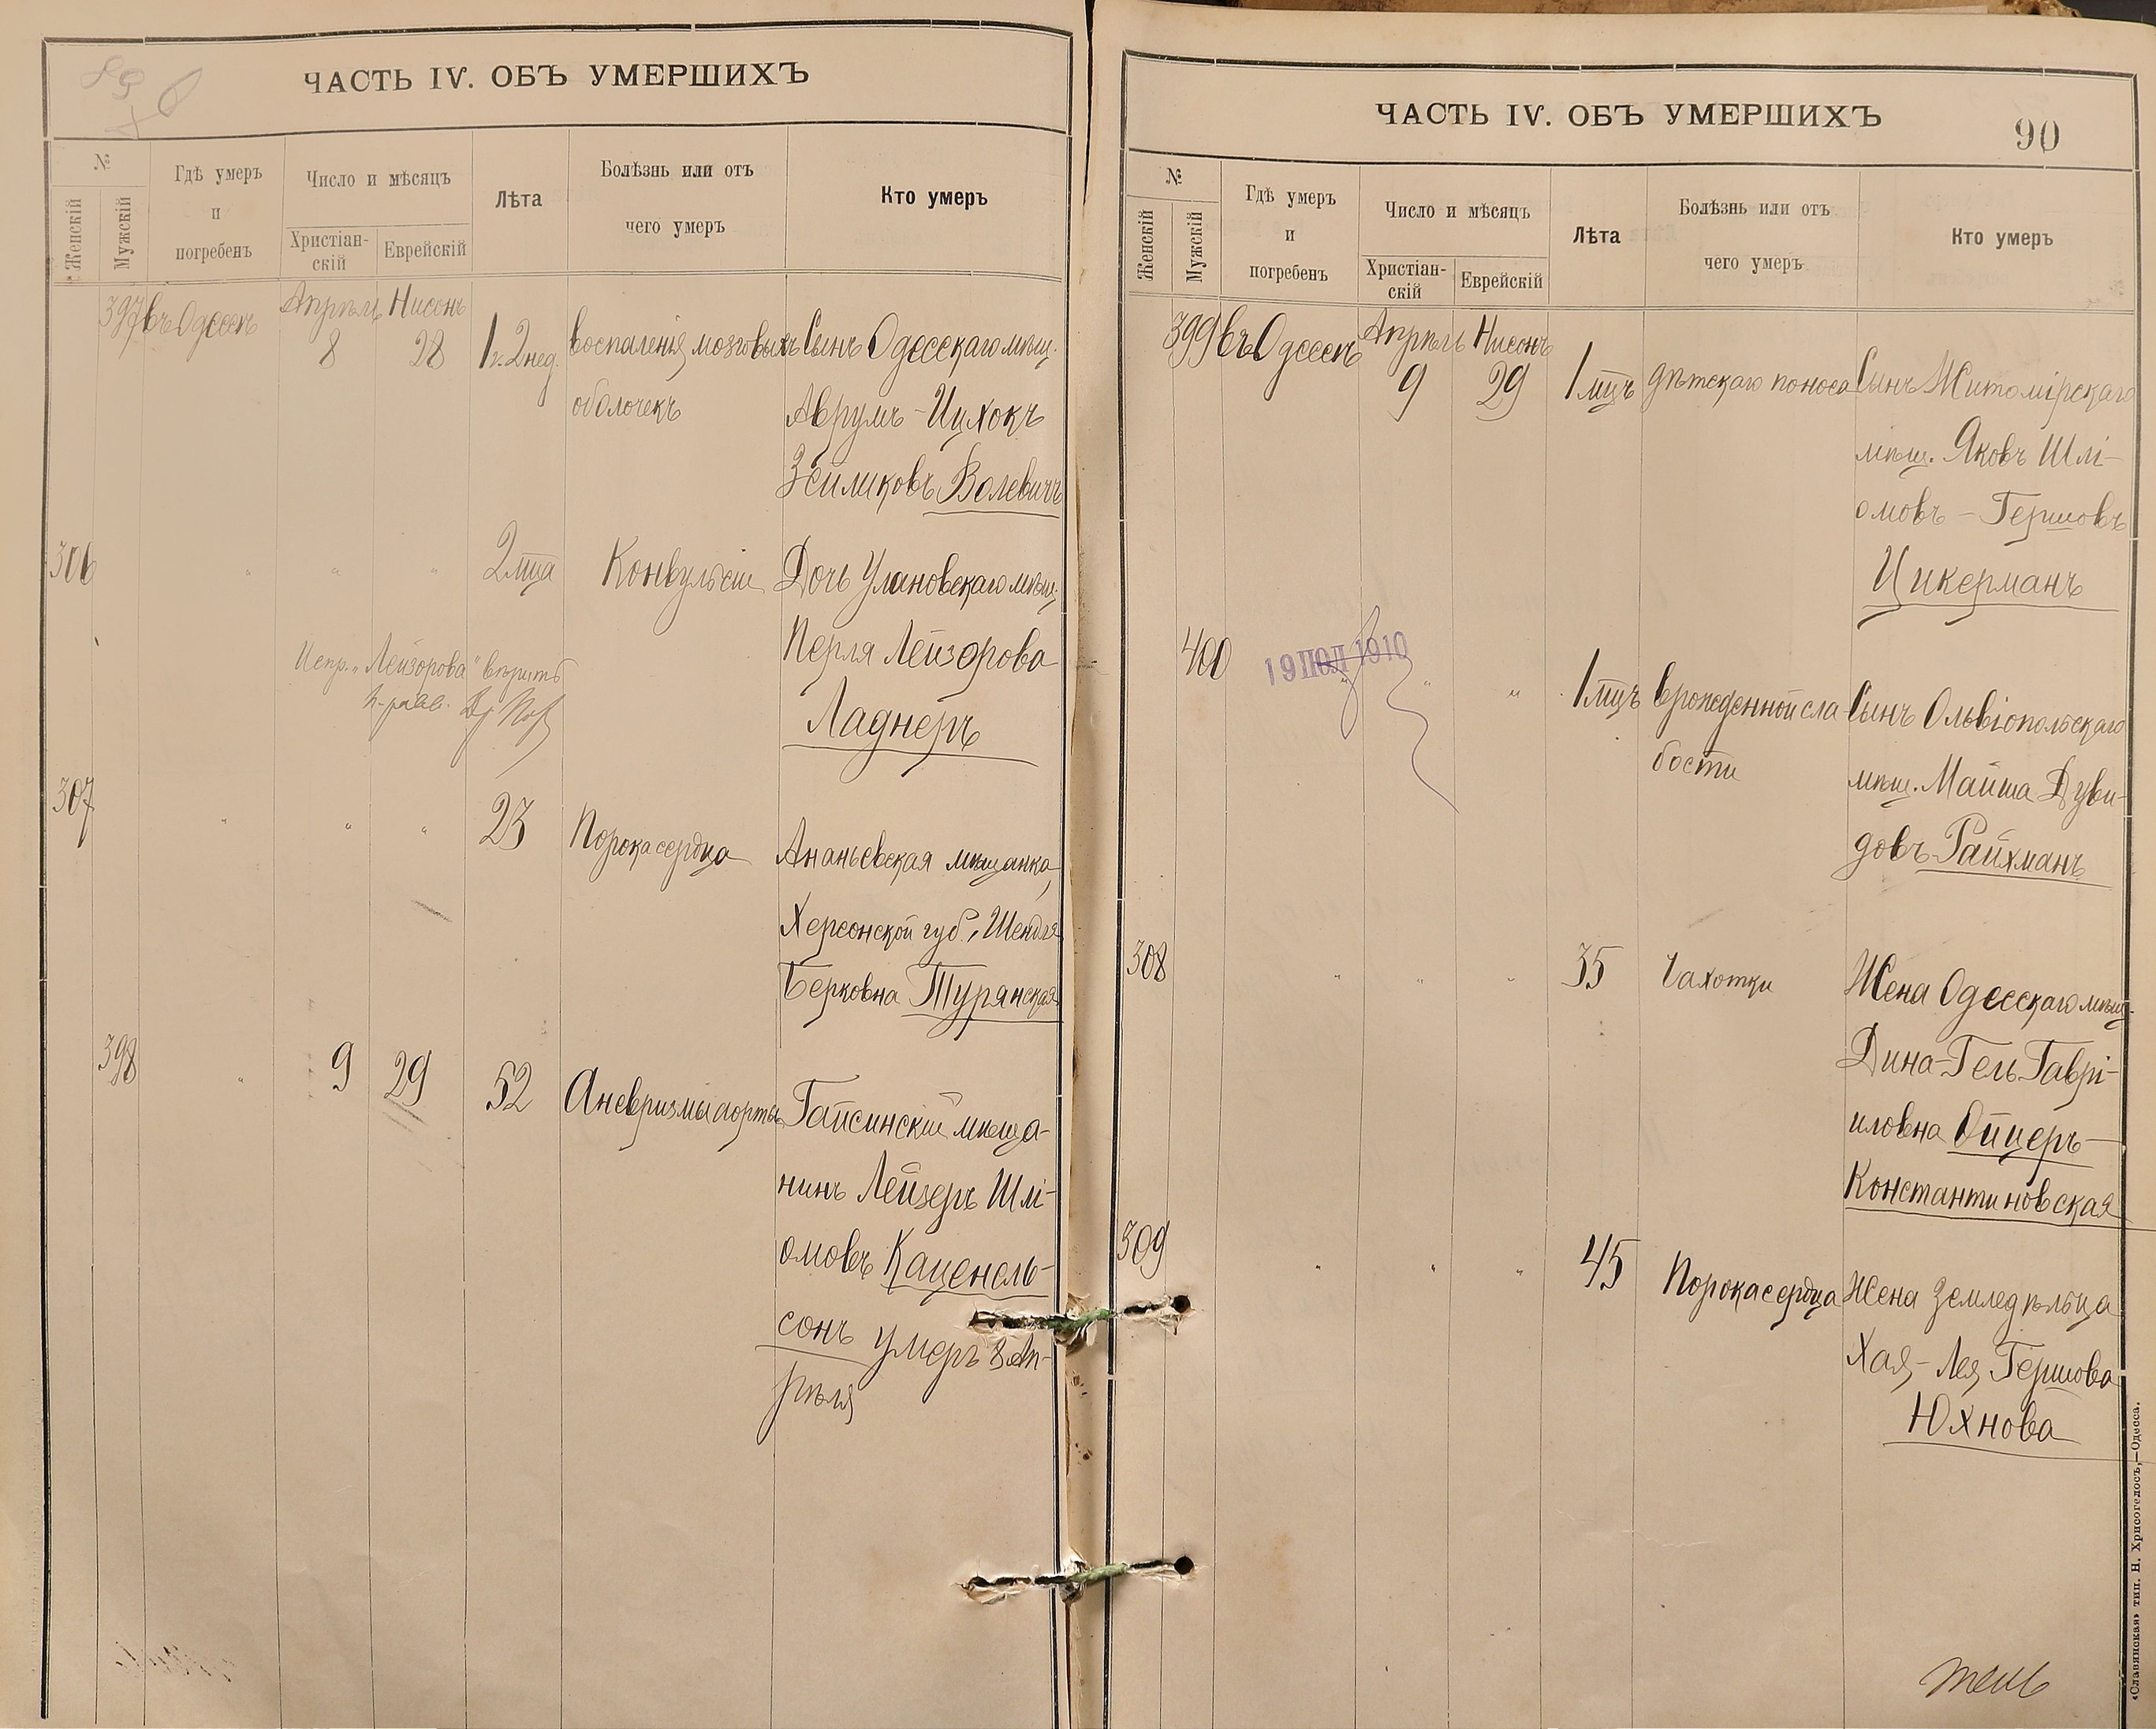 ЧАСТЬ IV. ОБЪ УМЕРШИХЪ
№
Женскій
Мужскій
Гдѣ умеръ
и
погребенъ
Число и мѣсяцъ
Христіан-
скій
Еврейскій
Лѣта
Болѣзнь или отъ
чего умеръ
Кто умеръ
397 въ Одессѣ Апрѣль 8 Нисонъ 28 1 г. 2 нед. воспаленія мозговыхъ Сынъ Одесскаго мѣщ.
оболочекъ Аврумъ-Ицхокъ
Зейликовъ Волевичъ
306 " " " 2 мца Конвульсіи Дочь Улановскаго мѣщ.
Перля Лейзорова
Ладнеръ
Испр. "Лейзорова" вѣрить
307 " " " 23 Порока сердца Ананьевская мѣщанка,
Херсонской губ., Шендля
Берковна Турянская
398 " 9 29 52 Аневризмы аорты Гайсинскій мѣща-
нинъ Лейзеръ Шлі-
омовъ Каценель-
сонъ умеръ 8 Ап-
рѣля
ЧАСТЬ IV. ОБЪ УМЕРШИХЪ
90
№
Женскій
Мужскій
Гдѣ умеръ
и
погребенъ
Число и мѣсяцъ
Христіан-
скій
Еврейскій
Лѣта
Болѣзнь или отъ
чего умеръ
Кто умеръ
399 въ Одессѣ Апрѣль 9 Нисонъ 29 1 мцъ дѣтскаго поноса Сынъ Житомірскаго
мѣщ. Яковъ Шлі-
омовъ-Гершовъ
Цикерманъ
400 " " " 1 мцъ врожденной сла- Сынъ Ольвіопольскаго
бости мѣщ. Майша Дуви-
довъ Райхманъ
19 ІЮЛ 1910
308 " " " 35 Чахотки Жена Одесскаго мѣщ.
Дина-Гель Гаврі-
иловна Ойцеръ-
Константиновская
309 " " " 45 Порока сердца Жена Земледѣльца
Хая-Лея Гершова
Юхнова
«Славянская» тип. Н. Хрисогелосъ,—Одесса.